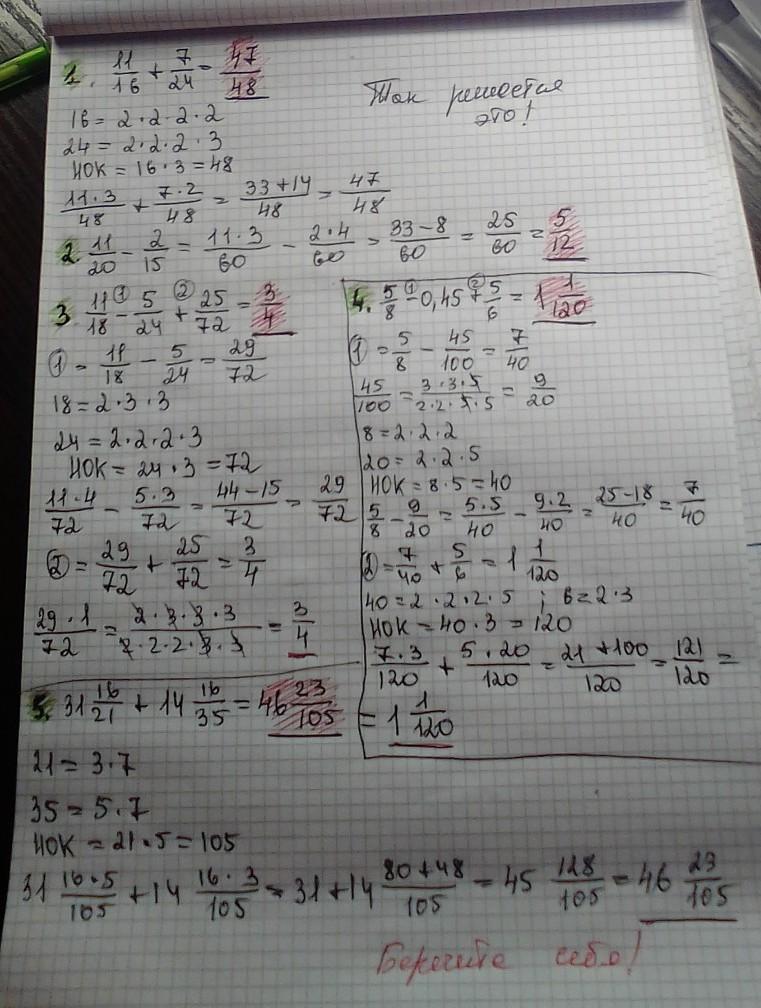 1. 11/16 + 7/24 = 47/48
Так решается
это!
16 = 2 · 2 · 2 · 2
24 = 2 · 2 · 2 · 3
НОК = 16 · 3 = 48
11·3/48 + 7·2/48 = 33+14/48 = 47/48
2. 11/20 - 2/15 = 11·3/60 - 2·4/60 = 33-8/60 = 25/60 = 5/12
3. 11/18 ① - 5/24 ② + 25/72 = 3/4
① = 11/18 - 5/24 = 29/72
18 = 2 · 3 · 3
24 = 2 · 2 · 2 · 3
НОК = 24 · 3 = 72
11·4/72 - 5·3/72 = 44-15/72 = 29/72
② = 29/72 + 25/72 = 3/4
29·1/72 = 2·3·3·3/2·2·2·3·3 = 3/4
4. 5/8 ① - 0,45 ② + 5/6 = 1 1/120
① = 5/8 - 45/100 = 7/40
45/100 = 3·3·5/2·2·5·5 = 9/20
8 = 2 · 2 · 2
20 = 2 · 2 · 5
НОК = 8 · 5 = 40
5/8 - 9/20 = 5·5/40 - 9·2/40 = 25-18/40 = 7/40
② = 7/40 + 5/6 = 1 1/120
40 = 2 · 2 · 2 · 5 ; 6 = 2 · 3
НОК = 40 · 3 = 120
7·3/120 + 5·20/120 = 21+100/120 = 121/120 =
= 1 1/120
5. 31 16/21 + 14 16/35 = 46 23/105
21 = 3 · 7
35 = 5 · 7
НОК = 21 · 5 = 105
31 16·5/105 + 14 16·3/105 = 31 + 14 80+48/105 = 45 128/105 = 46 23/105
Берегите себя!